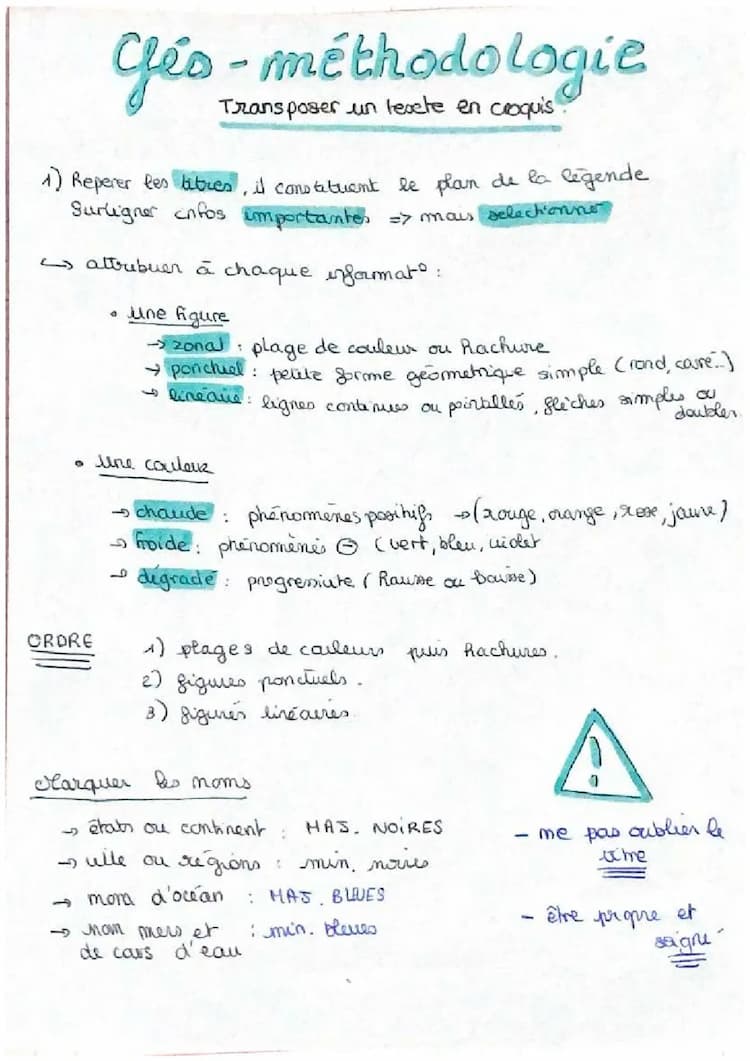 Géo - méthodologie
Transposer un texte en croquis.
1) Reperer les titres, il constituent le plan de la légende
Surligner infos importantes => mais selectionner
↳ attribuer à chaque informat° :
• Une figure
→ zonal : plage de couleur ou hachure
→ ponctuel : petite forme géometrique simple (rond, carré..)
→ linéaire : lignes continues ou pointillés, flèches simples ou doubles.
• Une couleur
→ chaude : phénomènes positifs → (rouge, orange, rose, jaune)
→ froide : phénomènes ⊖ (vert, bleu, violet
→ dégradé : progressivité (Hausse ou baisse)
ORDRE
1) plages de couleurs puis hachures.
2) figures ponctuels.
3) figurés linéaires.
Marquer les noms
→ états ou continent : MAJ. NOIRES
→ ville ou régions : min. noires
→ nom d'océan : MAJ. BLUES
→ nom mers et : min. bleues
de cours d'eau
!
- ne pas oublier le
titre
- être propre et
soigné